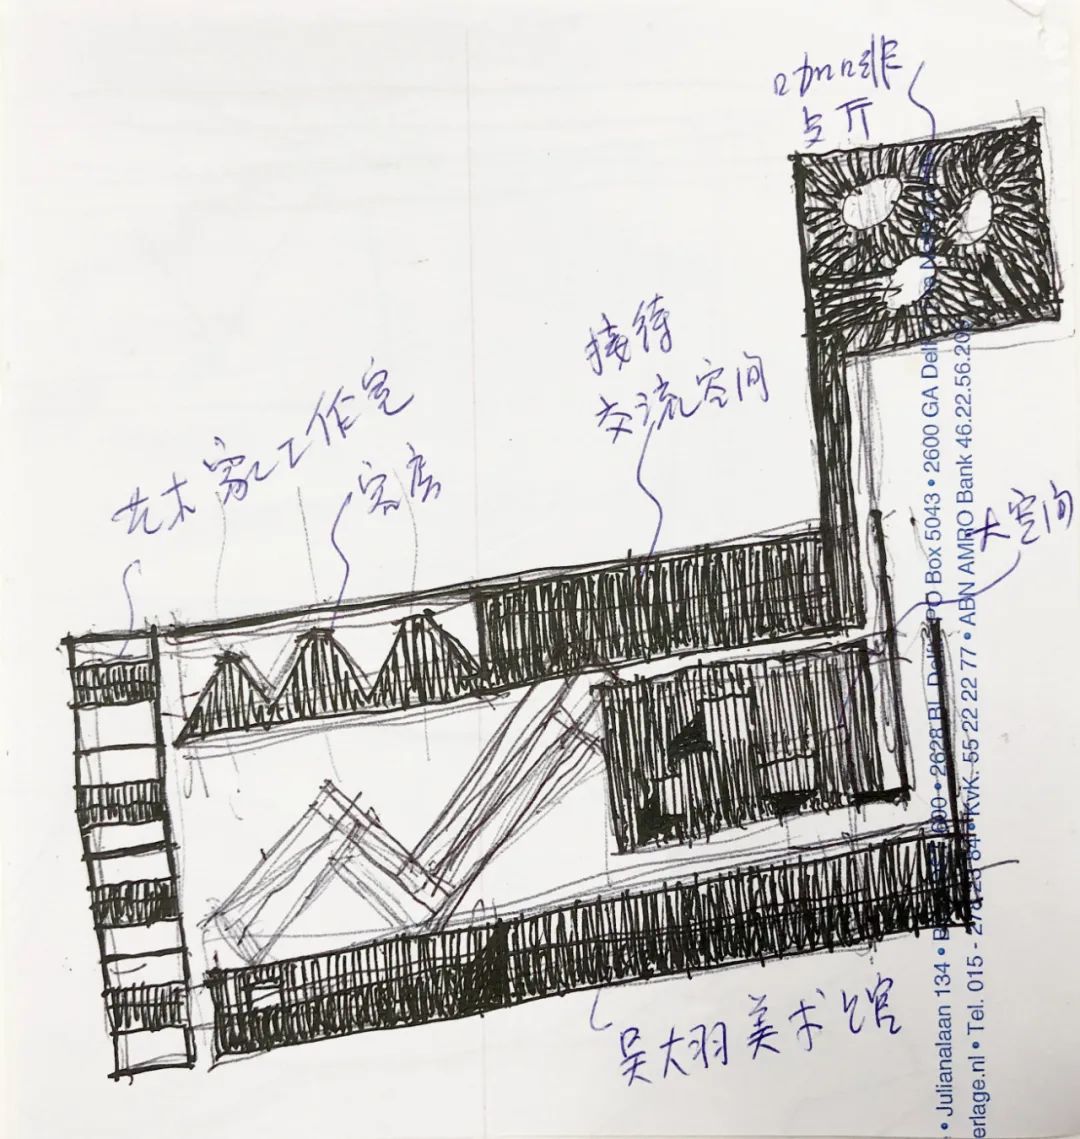 咖啡
与厅
接待
交流空间
艺术家工作室
客房
大空间
吴大羽美术馆
• Julianalaan 134 •
2628 BL Delft
PO Box 5043 • 2600 GA Delft
erlage.nl • Tel. 015 - 278
KvK. 55 22 22 77 • ABN AMRO Bank 46.22.56.20